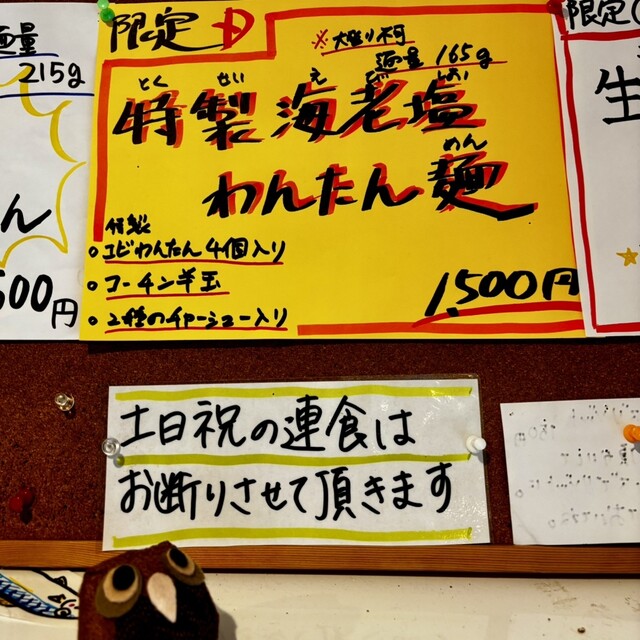 限定D
※大盛り不可
麺量165g
とく せい え び しお
特製海老塩
めん
わんたん麺
特製
○エビわんたん4個入り
○コーチン半玉
○2種のチャーシュー入り
1,500円
麺量
215g
ん
500円
限定
生
土日祝の連食は
お断りさせて頂きます